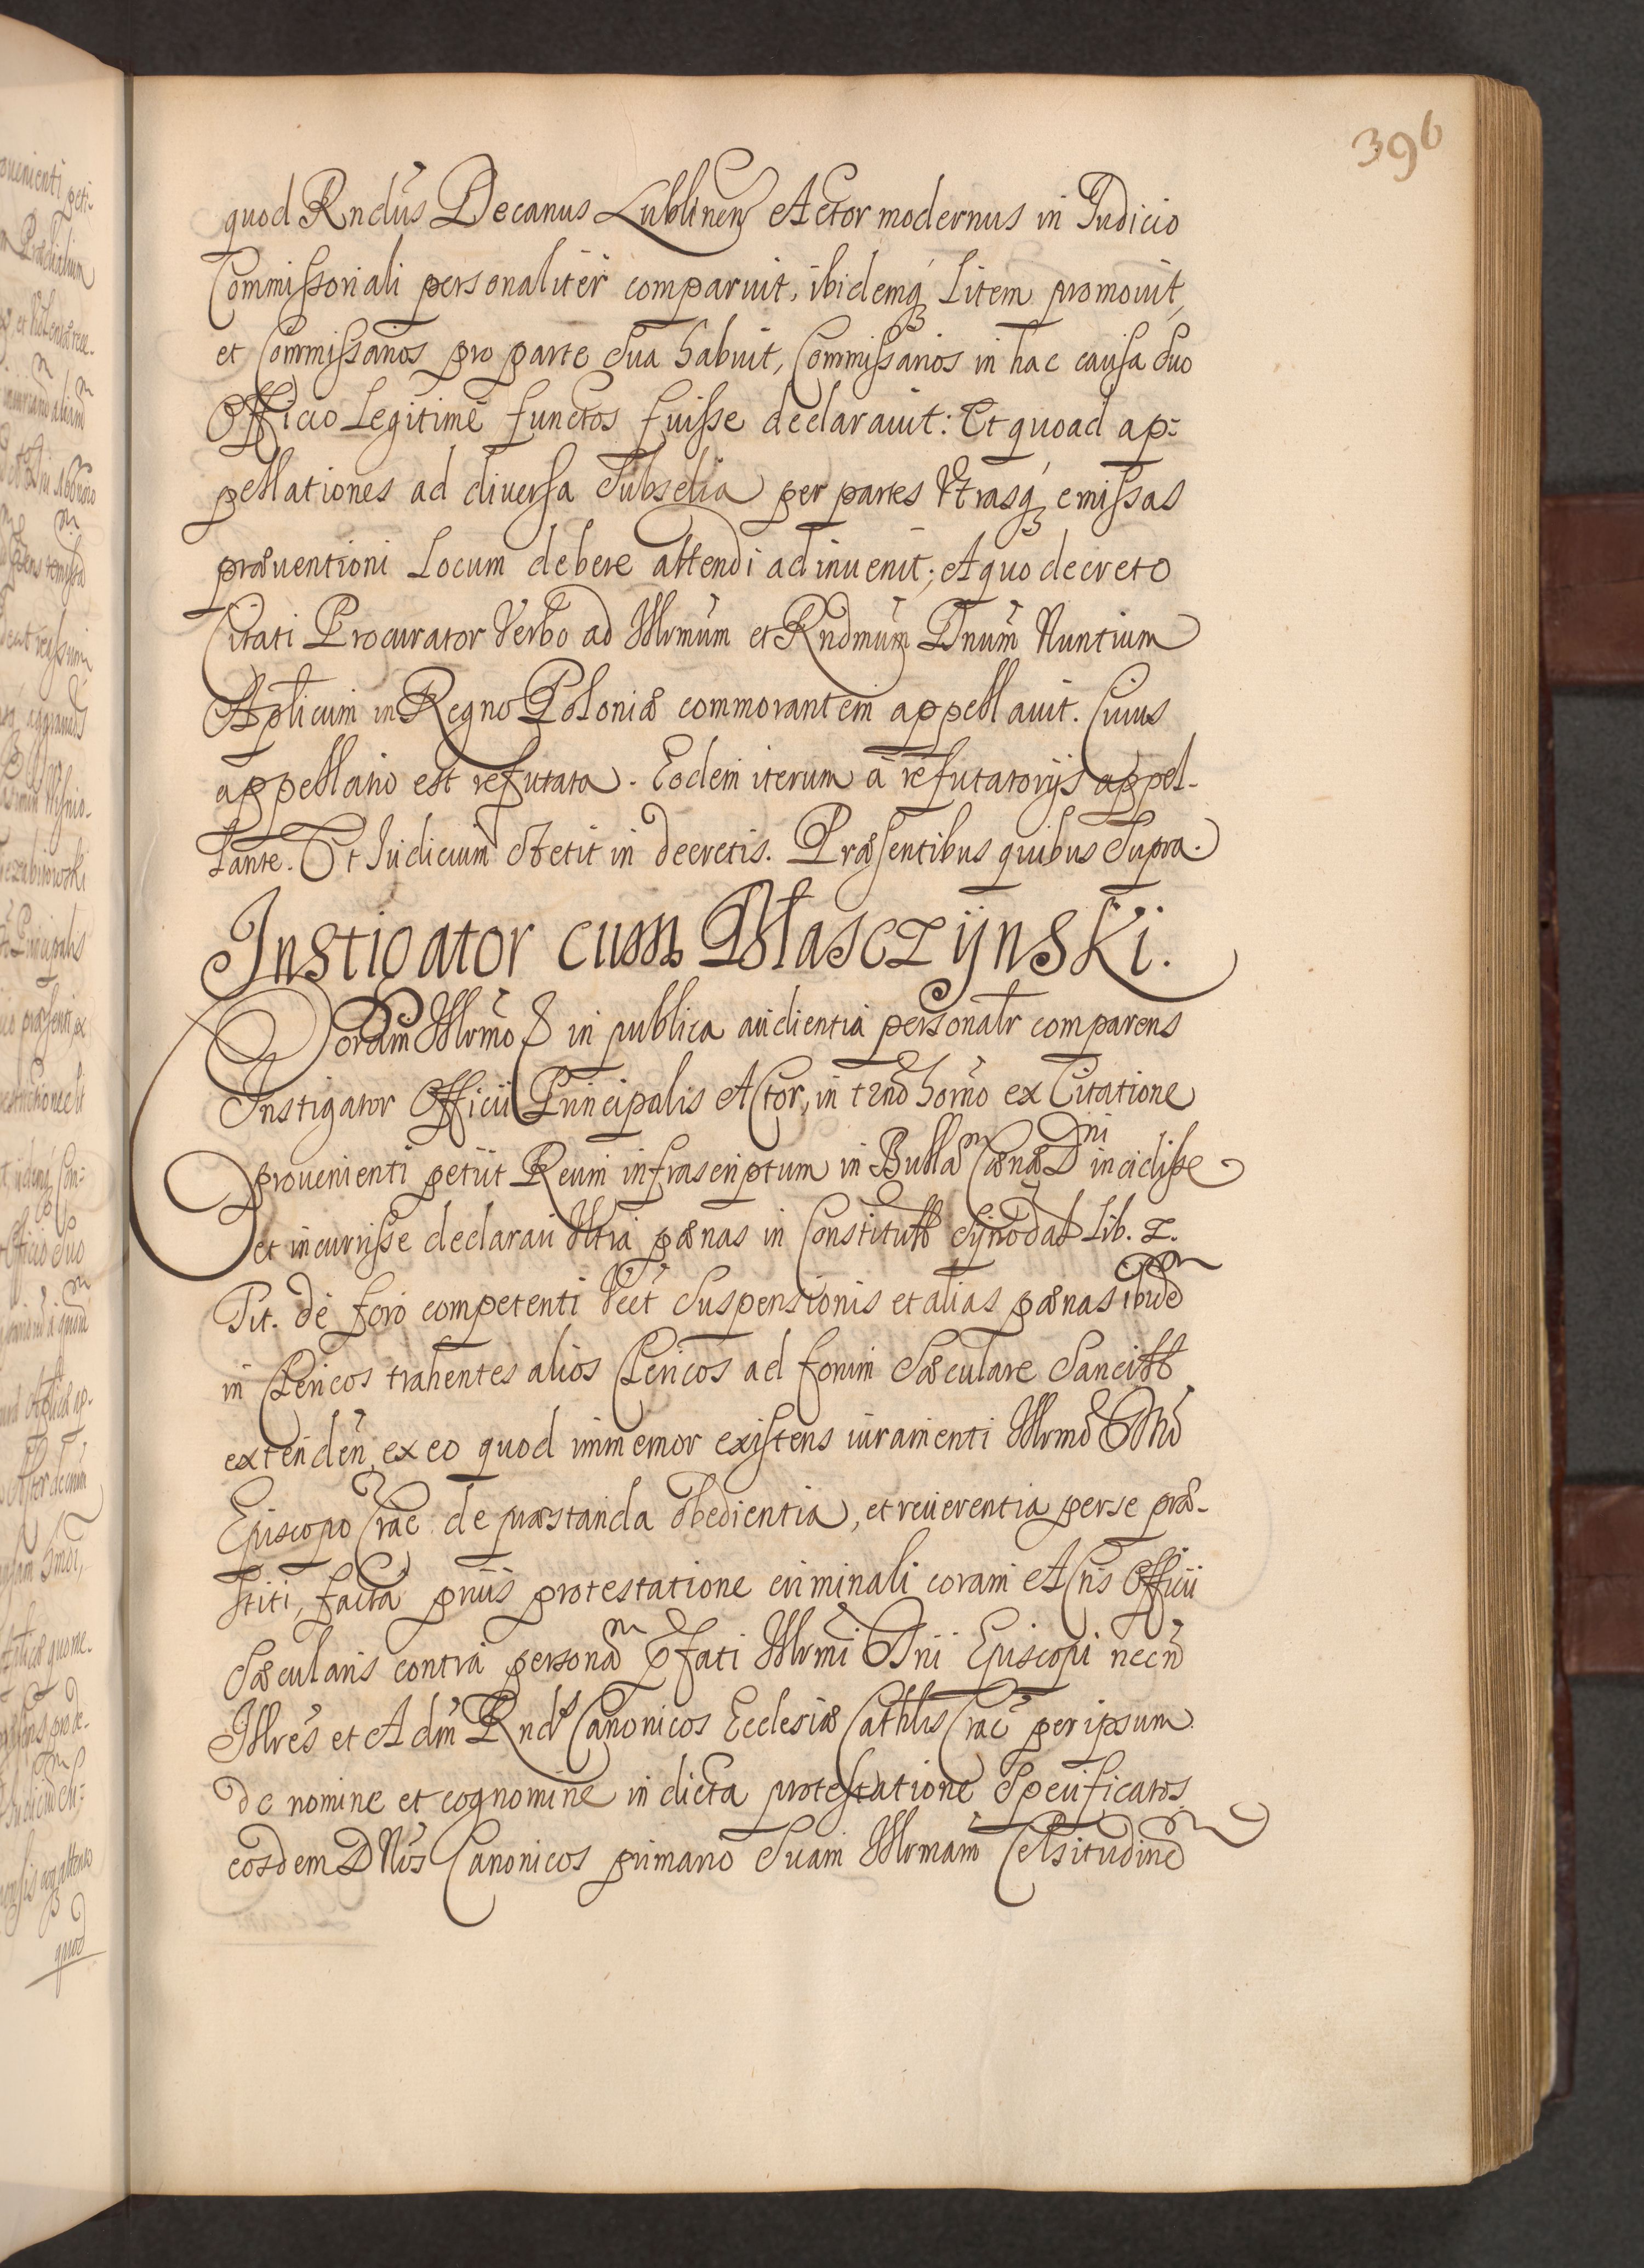 396
quod Rndus Decanus Lublinen Actor modernus in Iudicio
Commissoriali personaliter comparuit, ibidemq; Litem promouit,
et Commissarios pro parte Sua habuit, Commissarios in hac causa Suo
Officio Legitimè functos fuisse declarauit: Et quoad ap:
pellationes ad diuersa Subselia per partes Vtrasq; emissas
præuentioni Locum debere attendi adinuenit; A quo decreto
Citati Procurator Verbo ad Illrmum et Rndmum Dnum Nuntium
Aplicum in Regno Poloniæ commorantem appellauit. Cuius
appellatio est refutata. Eodem iterum à refutatorijs appel-
lante. Et Iudicium Stetit in decretis. Præsentibus quibus Supra.
Instigator cum Błasczÿnski.
Coram Illrmo &c in publica audientia personalr comparens
Instigator Officii Principalis Actor, in tno horno ex Citatione
prouenienti petiit Reum infrascriptum in Bullam Cænæ Dni incidisse
et incurrisse declarari Vltra pænas in Constitut Synodal Lib. 2.
Tit. de foro competenti Vect Suspensionis et alias pænas ibidem
in Clericos trahentes alios Clericos ad forum Sæculare Sancitt
extenden, ex eo quod immemor existens iuramenti Illrmo Dno
Episcopo Crac de præstanda obedientia, et reuerentia per se præ-
stiti, facta prius protestatione criminali coram Actis Officii
Sæcularis contra personam pfati Illrmi Dni Episcopi necn
Illres et Adm Rndos Canonicos Ecclesiæ Cathlis Crac per ipsum
de nomine et cognomine in dicta protestatione Specificatos
eosdem DNos Canonicos primario Suam Illrmam Celsitudinem